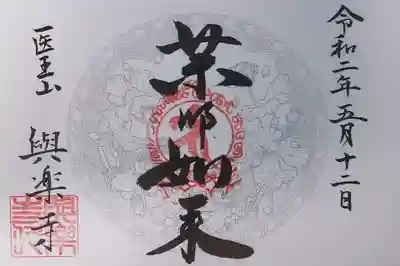 令和二年五月十二日
薬师如来
医王山 與楽寺